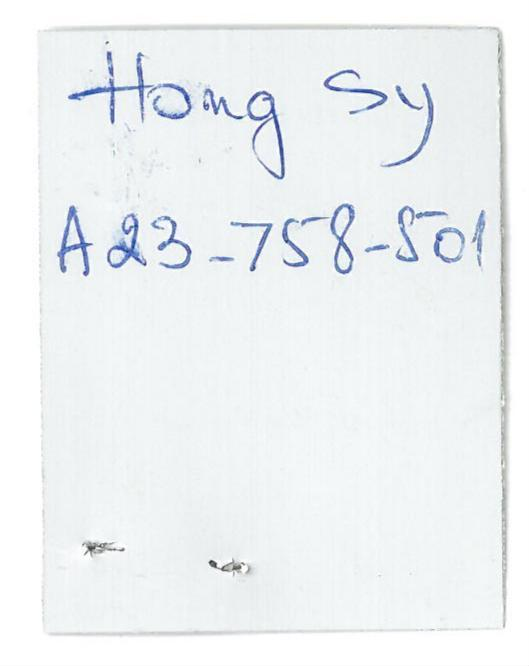 Hong Sy
A23-758-501